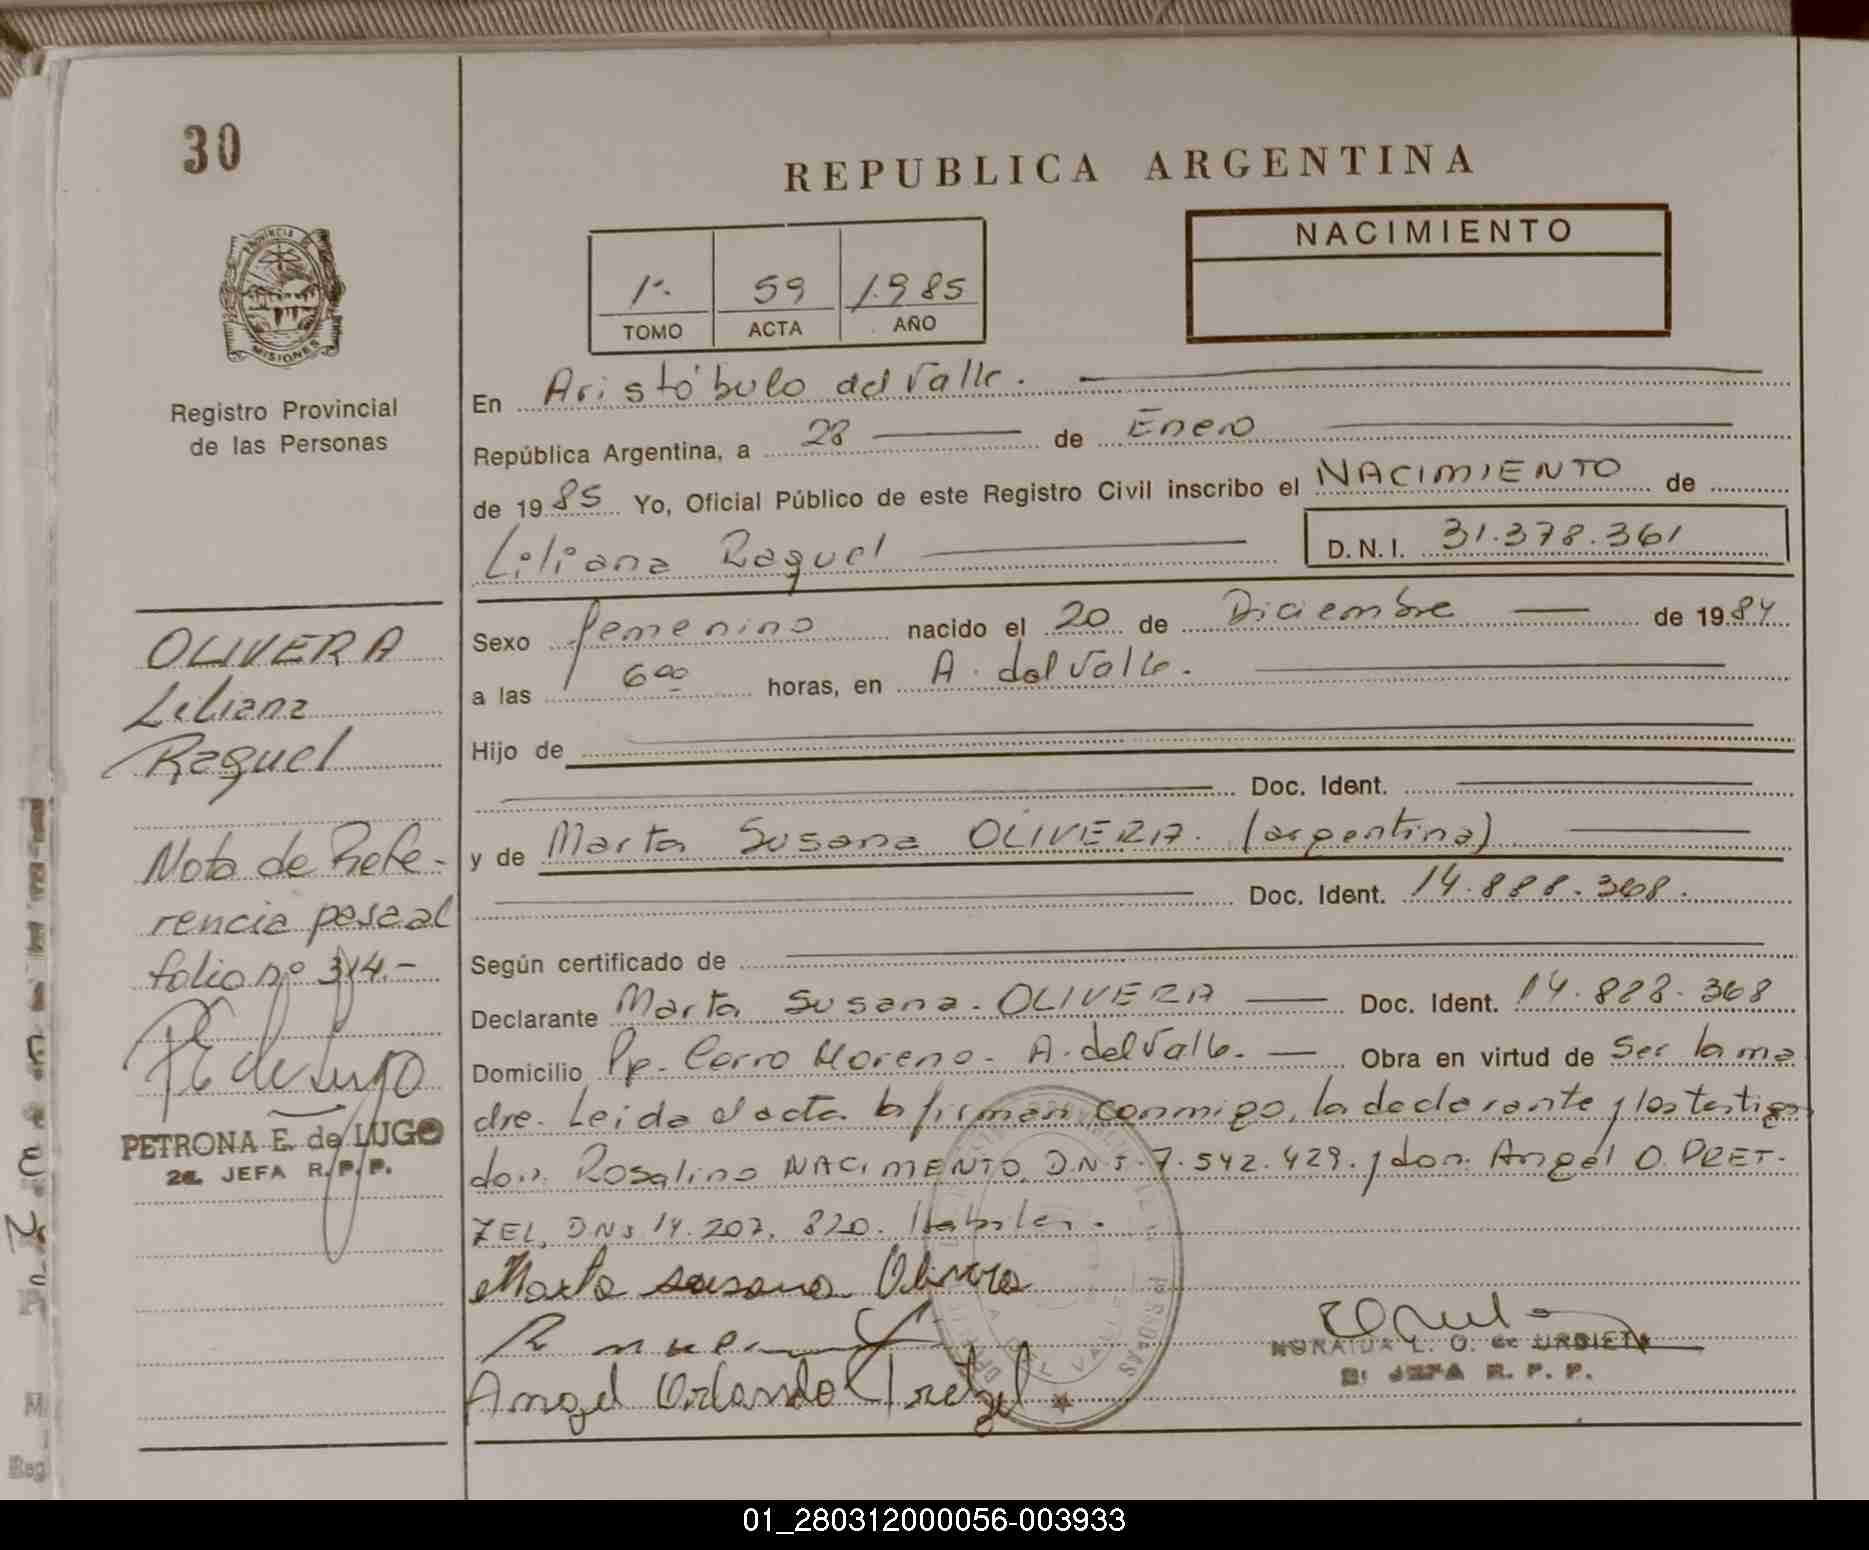 30
REPUBLICA ARGENTINA
NACIMIENTO
1º 59 1.985
TOMO ACTA AÑO
PROVINCIA DE MISIONES
Registro Provincial
de las Personas
En Aristóbulo del Valle.
República Argentina, a 28 de Enero
de 1985 Yo, Oficial Público de este Registro Civil inscribo el NACIMIENTO de
Liliana Raquel D.N.I. 31.378.361
OLIVERA
Liliana
Raquel
Nota de Refe-
rencia pasa al
folio nº 314.-
PE de Lugo
PETRONA E. de LUGO
2a. JEFA R.P.P.
Sexo femenino nacido el 20 de Diciembre de 1984
a las 6 00 horas, en A. del Valle.
Hijo de
Doc. Ident.
y de Marta Susana OLIVERA. (argentina)
Doc. Ident. 14.888.368.
Según certificado de
Declarante Marta Susana. OLIVERA Doc. Ident. 14.888.368
Domicilio Pje. Cerro Moreno- A. del Valle. Obra en virtud de Ser la ma
dre. Leida el acta la firman conmigo, la declarante y los testigos
don. Rosalino NACIMENTO, D.N.I. 7.542.429. y don. Angel O. PRET-
ZEL, DNI 14.207.820. Habiles.
Marta susana Olivera
Angel Orlando Pretzel
NORAIDA L. O. de URBIETA
2ª JEFA R. P. P.
01_280312000056-003933